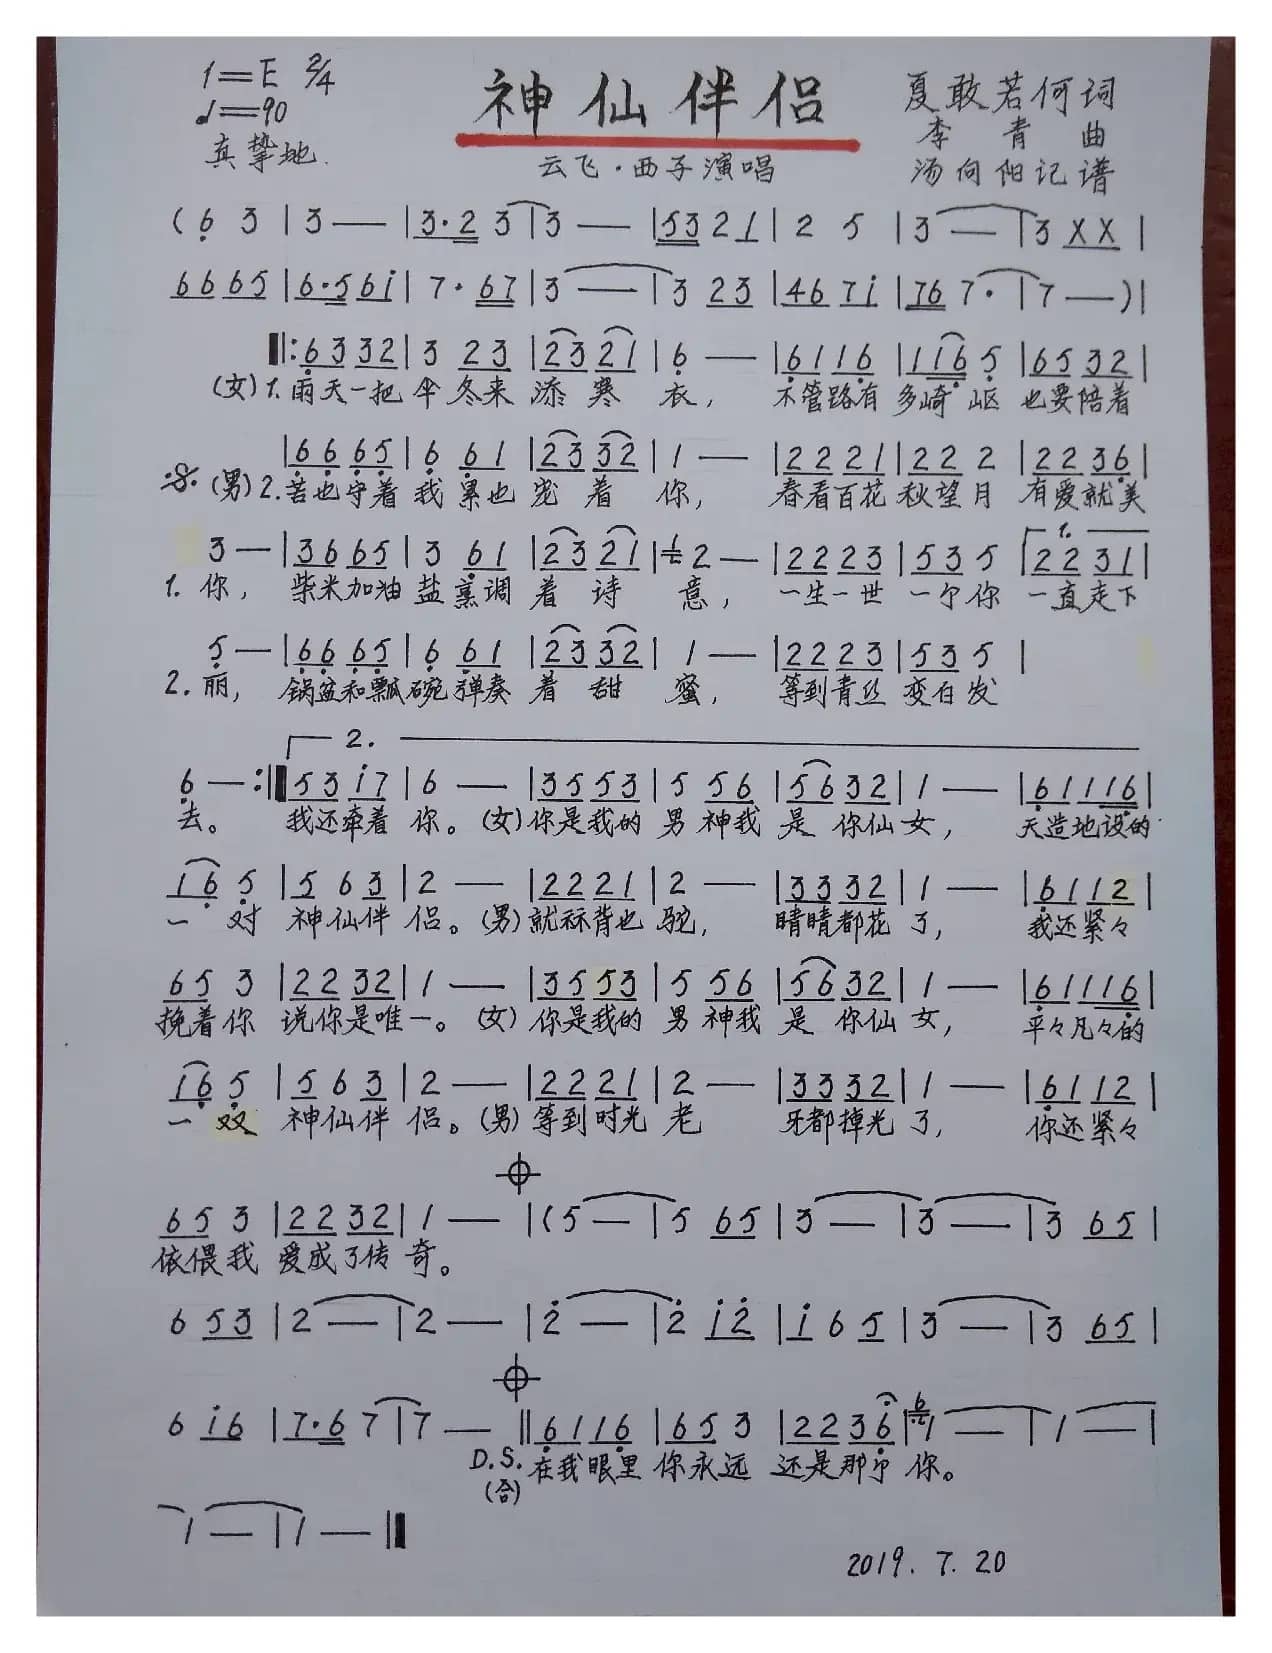 1=E 2/4
♩=90
真挚地.
神仙伴侣
云飞·西子演唱
夏敢若何词
李青曲
汤向阳记谱
( 6 3 | 3 — | 3·2 3 | 3 — | 53 2 1 | 2 5 | 3 — | 3 X X |
66 65 | 6·5 61 | 7·67 | 3 — | 3 23 | 46 71 | 76 7· | 7 — ) |
‖: 63 32 | 3 23 | 23 21 | 6 — | 61 16 | 116 5 | 65 32 |
(女) 1. 雨天一把 伞 冬来 添 寒 衣, 不管路有 多崎岖 也要陪着
| 66 65 | 6 61 | 23 32 | 1 — | 22 21 | 22 2 | 22 36 |
(男) 2. 苦也守着 我 累也 宠 着 你, 春看百花 秋望月 有爱就美
3 — | 36 65 | 3 61 | 23 21 | 2 — | 22 23 | 53 5 | 1. 22 31 |
1. 你, 柴米加油 盐 烹调 着 诗 意, 一生一世 一个你 一直走下
5 — | 66 65 | 6 61 | 23 32 | 1 — | 22 23 | 53 5 |
2. 丽, 锅盆和瓢 碗 弹奏 着 甜 蜜, 等到青丝 变白发
2.
6 — :‖ 53 17 | 6 — | 35 53 | 5 56 | 56 32 | 1 — | 61 116 |
去。 我还牵着 你。 (女) 你是我的 男 神我 是 你仙 女, 天造地设的
16 5 | 5 6 3 | 2 — | 22 21 | 2 — | 33 32 | 1 — | 61 12 |
一 对 神仙伴 侣。 (男) 就秝背也 驼, 睛睛都花 了, 我还紧々
65 3 | 22 32 | 1 — | 35 53 | 5 56 | 56 32 | 1 — | 61 116 |
挽着你 说你是唯一。 (女) 你是我的 男 神我 是 你仙 女, 平々凡々的
16 5 | 5 6 3 | 2 — | 22 21 | 2 — | 33 32 | 1 — | 61 12 |
一 双 神仙伴 侣。 (男) 等到时光 老 牙都掉光 了, 你还紧々
65 3 | 22 32 | 1 — | ( 5 — | 5 65 | 3 — | 3 — | 3 65 |
依偎我 爱成了传 奇。
6 53 | 2 — | 2 — | 2 — | 2 12 | 1 6 5 | 3 — | 3 65 |
6 16 | 7·6 7 | 7 — ‖ 61 16 | 65 3 | 22 36 | 1 — | 1 — |
D.S. (合) 在我眼里 你永远 还是那个 你。
1 — | 1 — ‖
2019. 7. 20